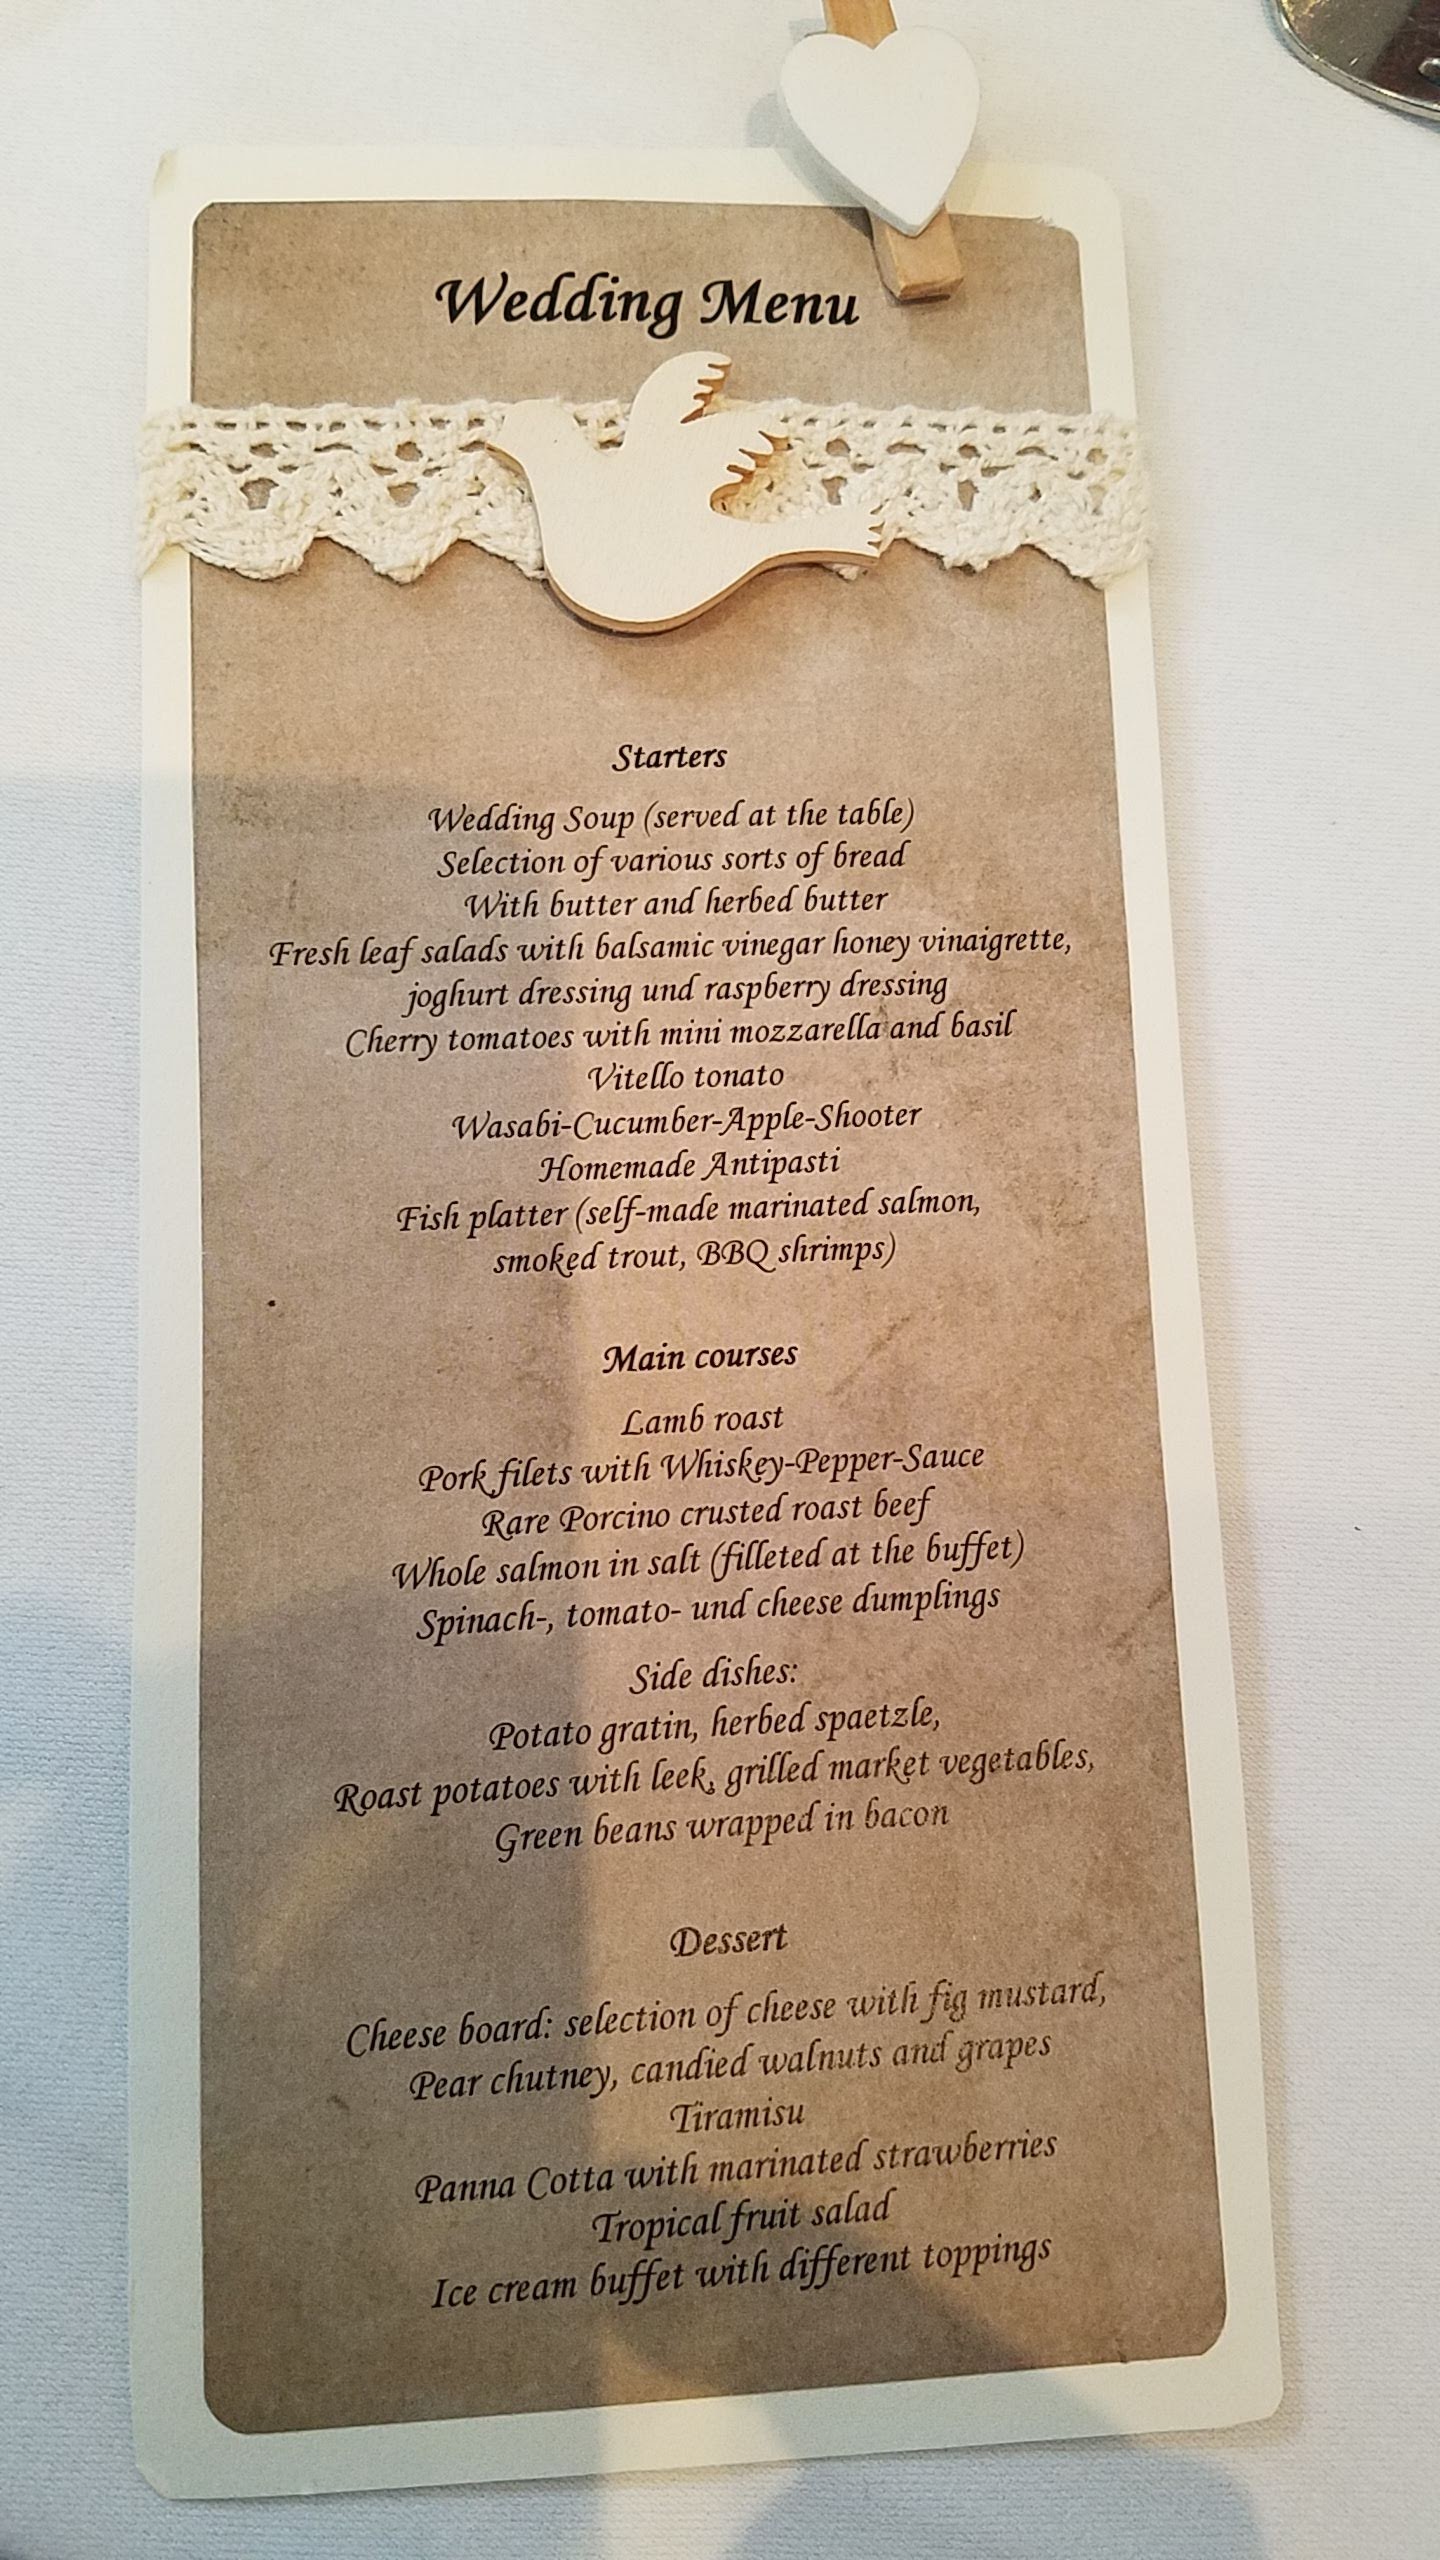 Wedding Menu
Starters
Wedding Soup (served at the table)
Selection of various sorts of bread
With butter and herbed butter
Fresh leaf salads with balsamic vinegar honey vinaigrette,
joghurt dressing und raspberry dressing
Cherry tomatoes with mini mozzarella and basil
Vitello tonato
Wasabi-Cucumber-Apple-Shooter
Homemade Antipasti
Fish platter (self-made marinated salmon,
smoked trout, BBQ shrimps)
Main courses
Lamb roast
Pork filets with Whiskey-Pepper-Sauce
Rare Porcino crusted roast beef
Whole salmon in salt (filleted at the buffet)
Spinach-, tomato- und cheese dumplings
Side dishes:
Potato gratin, herbed spaetzle,
Roast potatoes with leek, grilled market vegetables,
Green beans wrapped in bacon
Dessert
Cheese board: selection of cheese with fig mustard,
Pear chutney, candied walnuts and grapes
Tiramisu
Panna Cotta with marinated strawberries
Tropical fruit salad
Ice cream buffet with different toppings